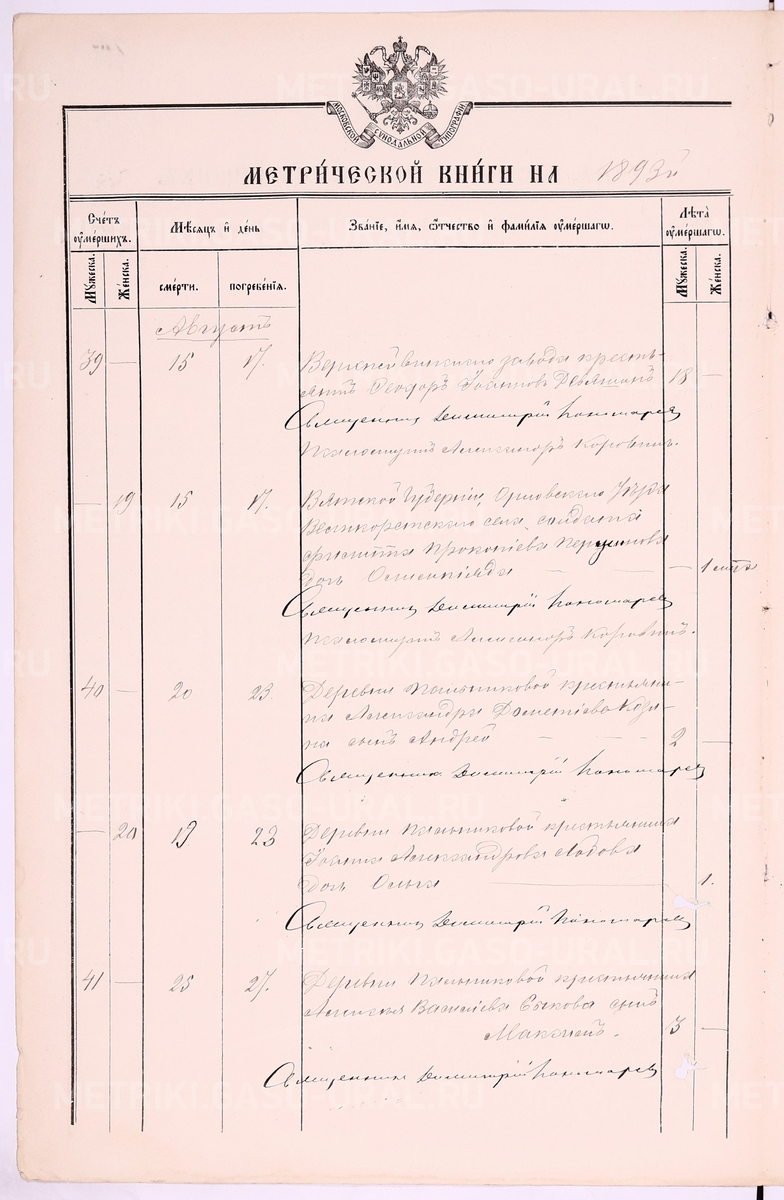 МОСКОВСКОЙ СѴНОДАЛЬНОЙ ТИПОГРАФІИ
МЕТРИ́ЧЕСКОЙ КНИ́ГИ НА 1893й
Сче́тъ оуме́ршихъ.
Мѣсяцъ и де́нь
Зва́ніе, и́мя, ѻ҆́тчество и фами́лія оуме́ршагѡ.
Лѣта̀ оуме́ршагѡ.
Мꙋ́жеска.
Же́нска.
сме́рти.
погребе́нія.
Мꙋ́жеска.
Же́нска.
Августъ
39 — 15 17. завода кресть-
янинъ Ѳеодоръ Іоанновъ Девяшинъ 18 —
Священникъ Димитрій Пономарев
Псаломщикъ Александръ Коровинъ.
— 19 15 17. Вятской Губерніи, Орловскаго Уѣзда
Великорѣтскаго села, солдата
Прокопіева
дочь — — — — 1
Священникъ Димитрій Пономарев
Псаломщикъ Александръ Коровинъ.
40 — 20 23. Деревни Пальниковой крестьяни-
на Александра Дометіева Козы-
на сынъ Андрей — — — 2 —
Священникъ Димитрій Пономарев
— 20 19 23 Деревни Пальниковой крестьянина
Іоанна Александрова
дочь Ольга — 1.
Священникъ Димитрій Пономарев
41 — 25 27. Деревни Пальниковой крестьянина
Алексѣя Васильева Быкова сынъ
Максимъ. 3 —
Священникъ Димитрій Пономарев